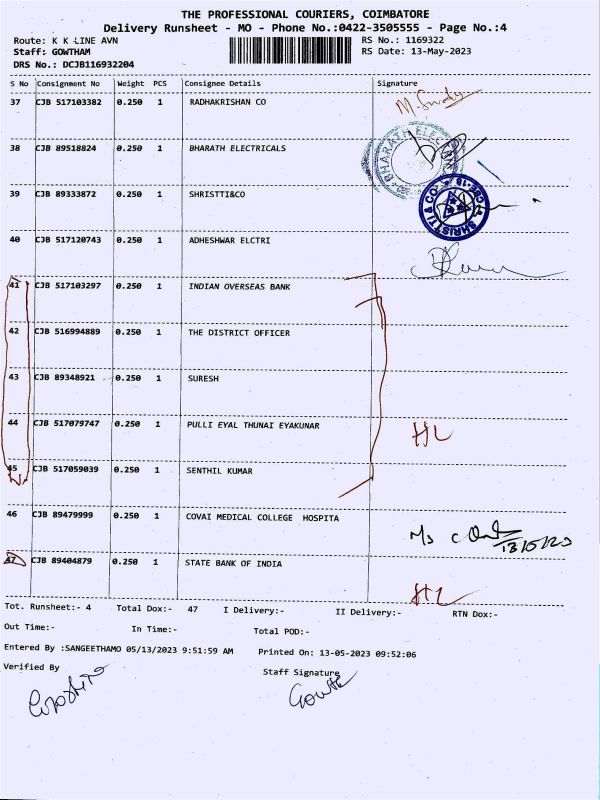 THE PROFESSIONAL COURIERS, COIMBATORE
Delivery Runsheet - MO - Phone No.:0422-3505555 - Page No.:4
Route: K K LINE AVN RS No.: 1169322
Staff: GOWTHAM RS Date: 13-May-2023
DRS No.: DCJB116932204
S No Consignment No Weight PCS Consignee Details Signature
37 CJB 517103382 0.250 1 RADHAKRISHAN CO
38 CJB 89518824 0.250 1 BHARATH ELECTRICALS
BHARATH ELEC
39 CJB 89333872 0.250 1 SHRISTTI&CO
SHRISTTI & CO CBE-18
40 CJB 517120743 0.250 1 ADHESHWAR ELCTRI
41 CJB 517103297 0.250 1 INDIAN OVERSEAS BANK
42 CJB 516994889 0.250 1 THE DISTRICT OFFICER
43 CJB 89348921 0.250 1 SURESH
44 CJB 517079747 0.250 1 PULLI EYAL THUNAI EYAKUNAR
HL
45 CJB 517059039 0.250 1 SENTHIL KUMAR
46 CJB 89479999 0.250 1 COVAI MEDICAL COLLEGE HOSPITA
13/5/23
47 CJB 89404879 0.250 1 STATE BANK OF INDIA
HL
Tot. Runsheet:- 4 Total Dox:- 47 I Delivery:- II Delivery:- RTN Dox:-
Out Time:- In Time:- Total POD:-
Entered By :SANGEETHAMO 05/13/2023 9:51:59 AM Printed On: 13-05-2023 09:52:06
Verified By Staff Signature